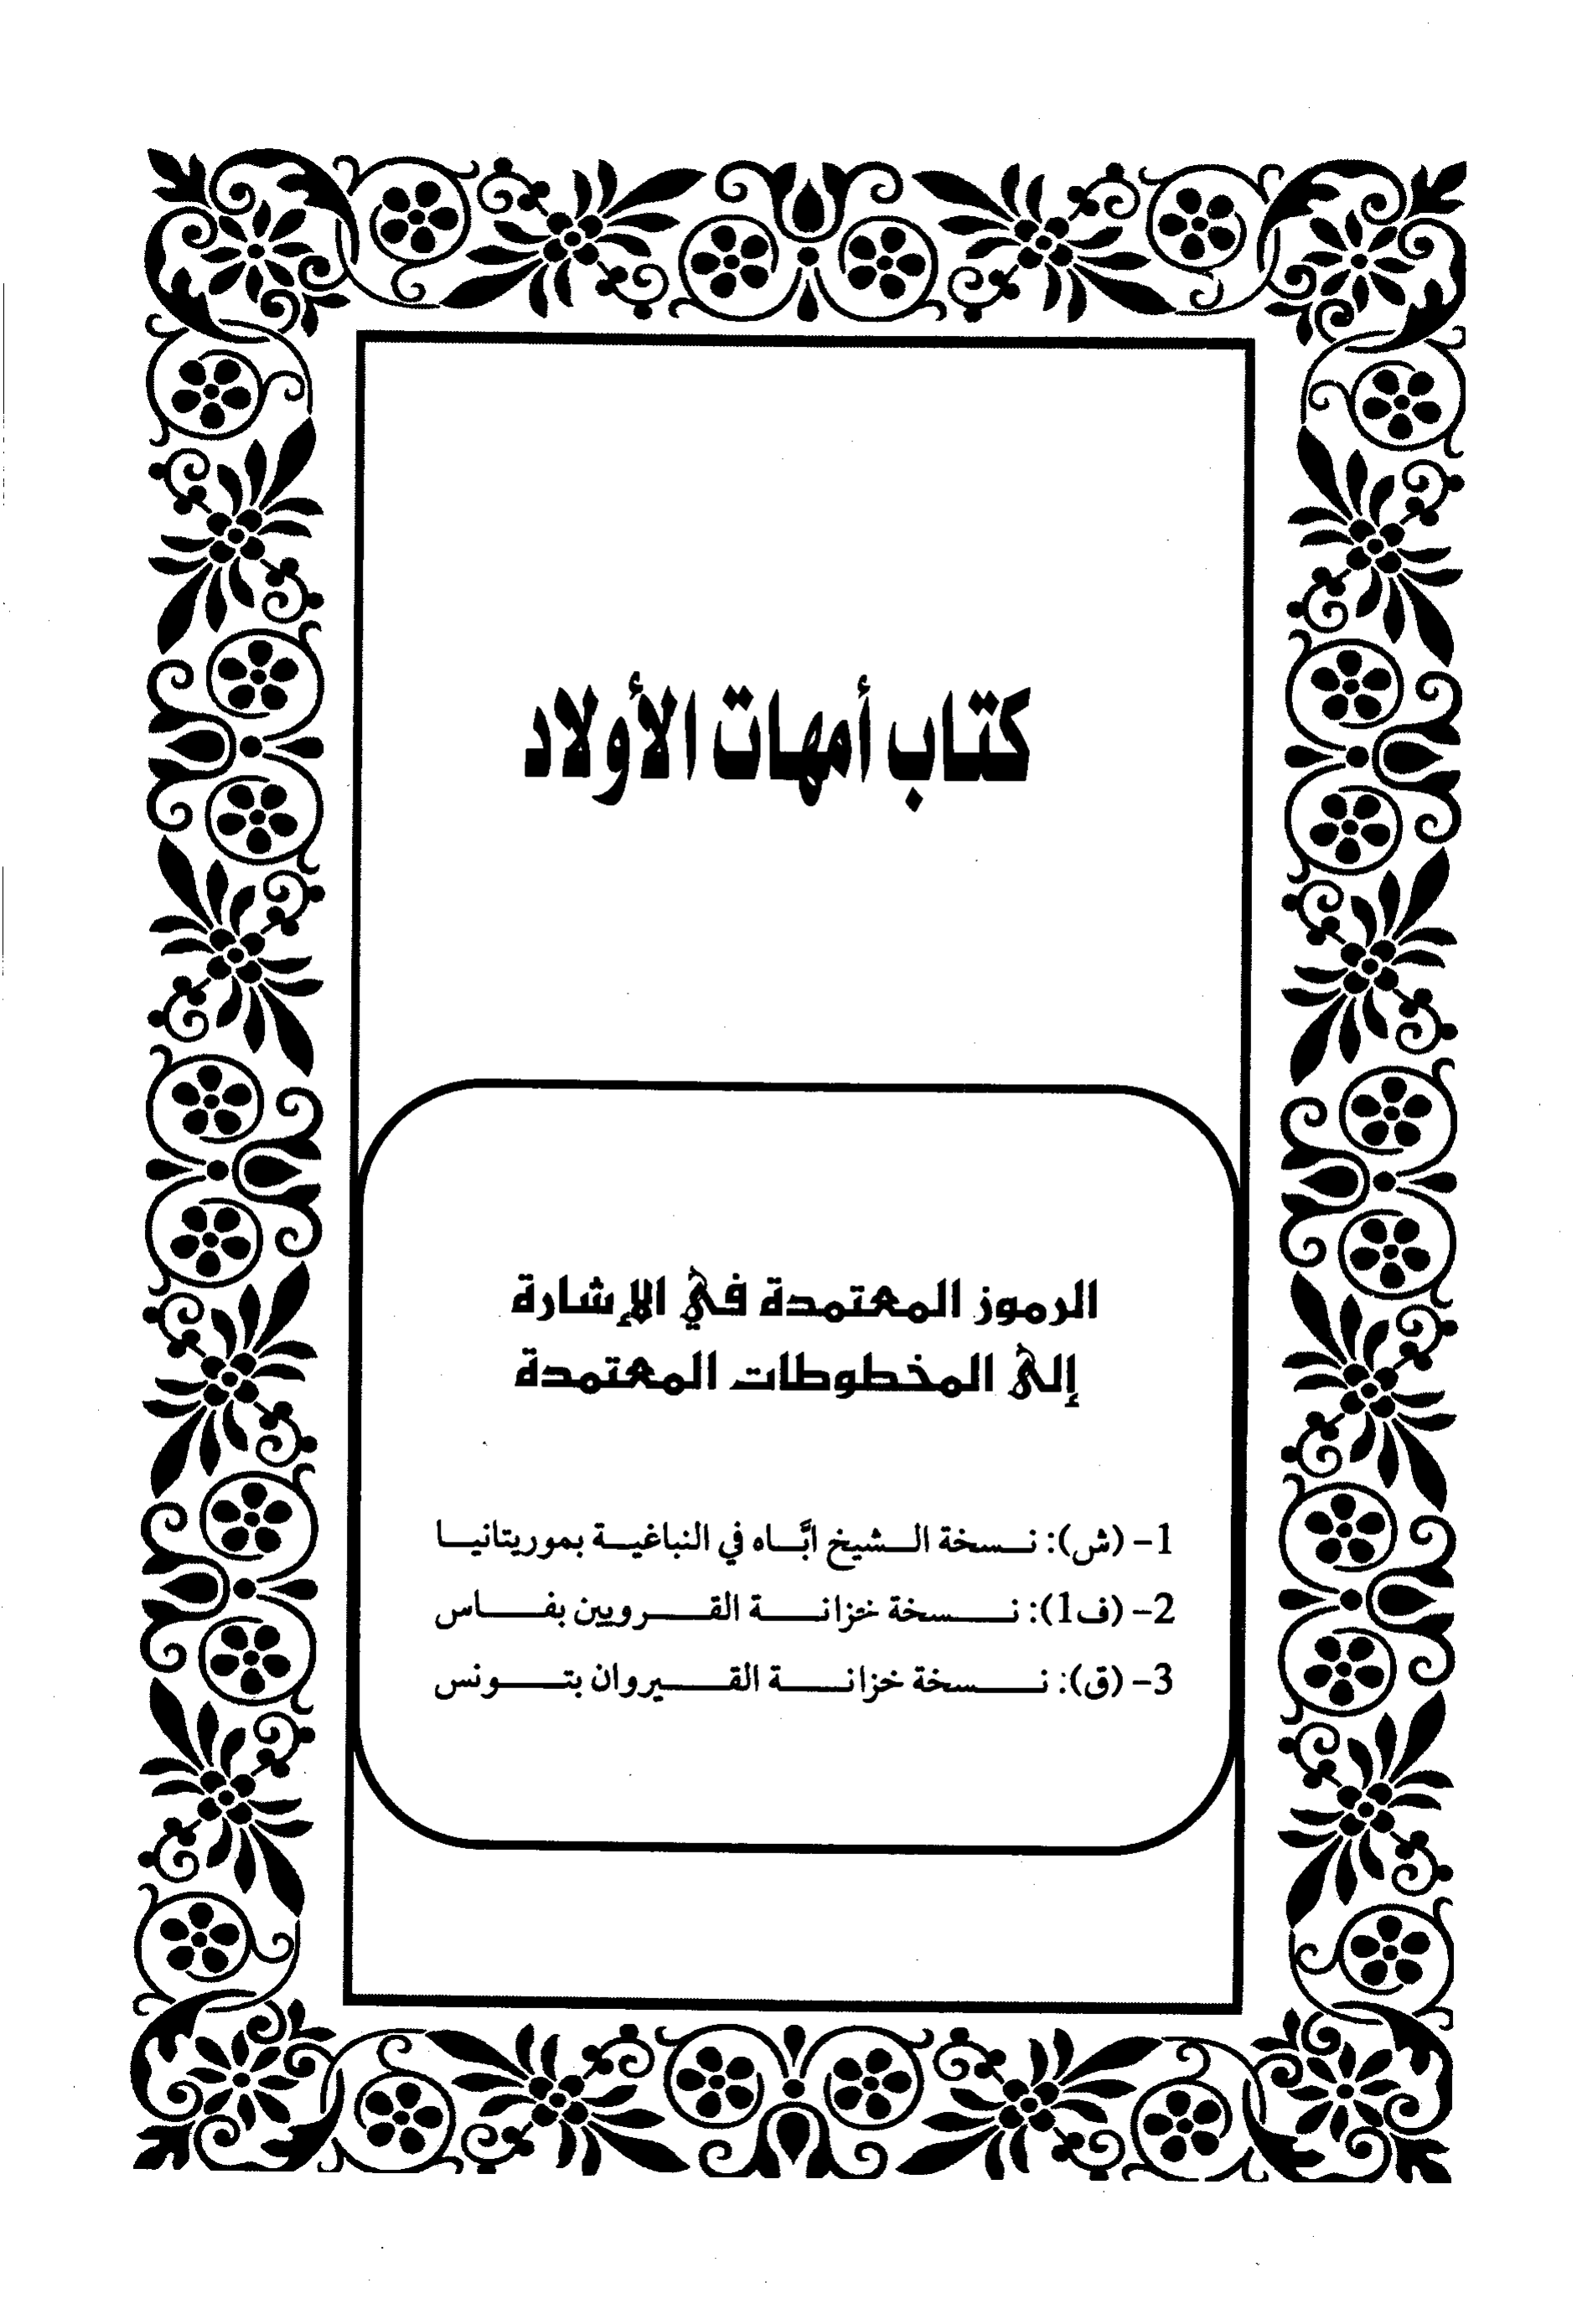 كتاب أمهات الأولاد
الرموز المعتمدة في الإشارة
إلى المخطوطات المعتمدة
1- (ش): نسخة الشيخ ابَّاه في النباغية بموريتانيا
2- (ف1): نسخة خزانة القرويين بفاس
3- (ق): نسخة خزانة القيروان بتونس